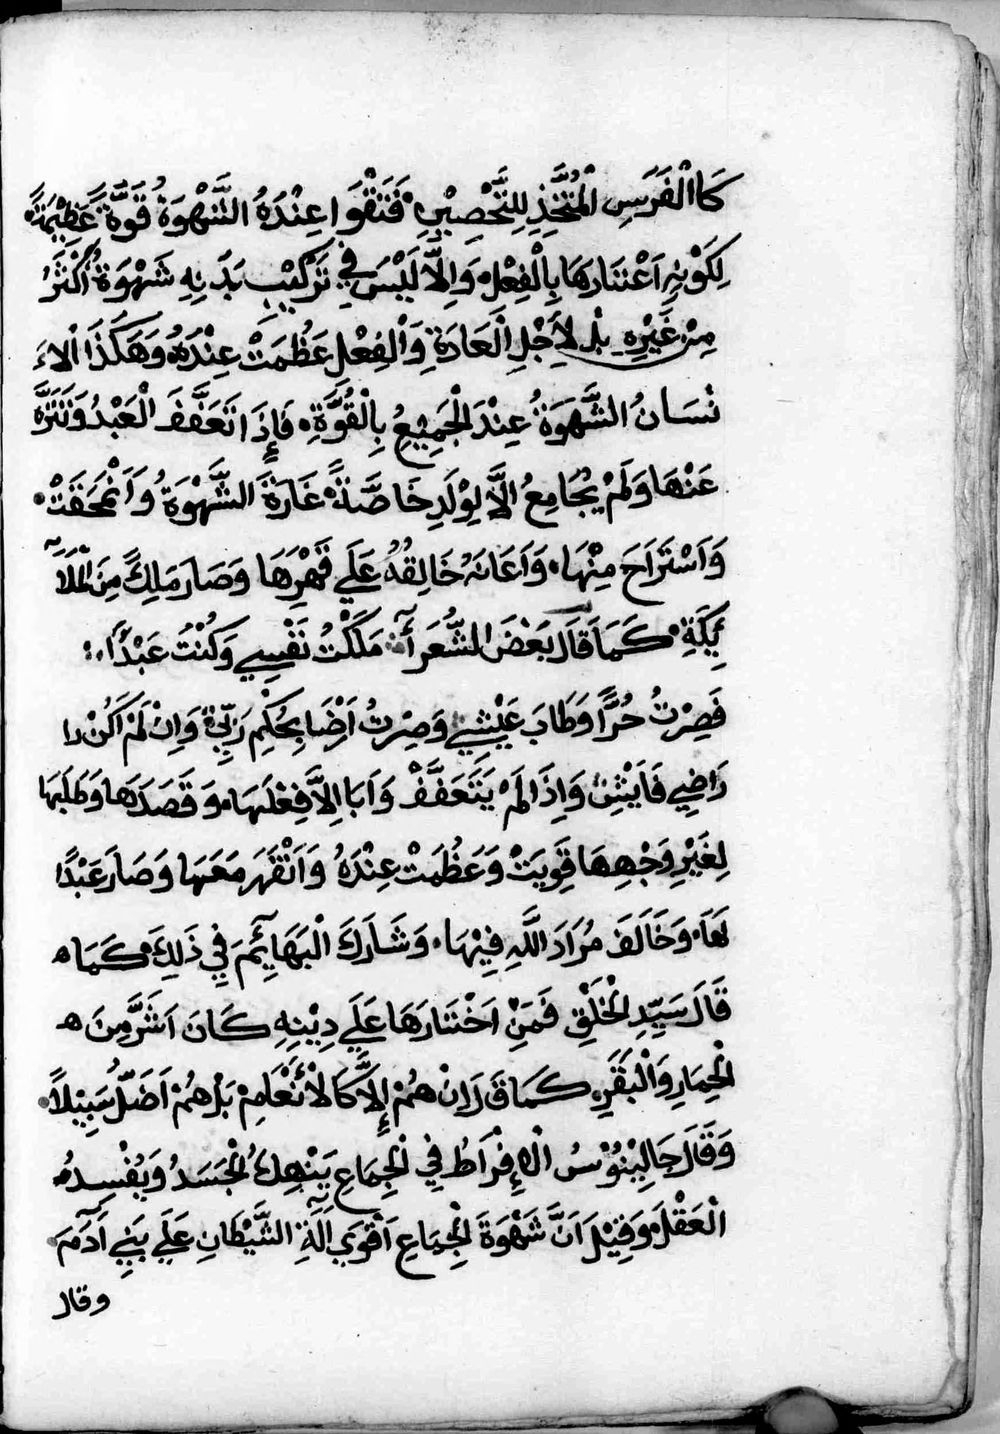 كَاالْفَرَسِ الْمُتَّخَذِ لِلتَّحْصِيْنِ فَتَقْوَا عِنْدَهُ الشَّهْوَةُ قُوَّةً عَظِيْمَةً
لِكَوْنِهِ اَعْتَنَارهَا بِالْفِعْلِ وَاِلَّا لَيْسَ فِي تَرْكِيْبِ بَدَنِهِ شَهْوَةُ اَكْثَرُ
مِنْ غَيْرِهِ بَلْ لِاَجْلِ الْعَادَةِ وَالْفِعْلِ عَظُمَتْ عِنْدَهُ وَهَكَذَا الْاءَ
نْسَانُ الشَّهْوَةُ عِنْدَ الْجَمِيْعِ بِالْقُوَّةِ فَإِذَا تَعَفَّفَ الْعَبْدُ وَتَنَزَّهَ
عَنْهَا وَلَمْ يُجَامِعُ الَّا لِوْلَدِ خَاصَّتةً غَارَةَ الشَّهْوَةُ وَاَنْمَحَقَتْ
وَاَسْتَرَاحَ مِنْهَا وَاَعَانَهُ خَالِقُهُ عَلَي قَهْرِهَا وَصَارَ مَلِكً مِنَ الْمَلَآ
ئِكَةِ كَمَا قَالَ بَعْضَ الشُّعَرَآء مَلَكْتُ نَفْسِي وَكُنْتُ عَبْدًا
فَصِرْتُ حُرًّا وَطَابَ عَيْشِي وَصِرْتُ اَرْضَا بِحُكْمِ رَبِّي وَاِنْ لَمْ اَكُنْ را
رَاضِي فَاَيْشِن وَاِذَا لَمْ يَتَعَفَّفْ وَاَبَا اِلَّا فِعْلَهَا وَقَصَدَهَا وَطَلَبَهَا
لِغَيْرِ وَجْهِهَا قَوِيَتْ وَعَظُمَتْ عِنْدَهُ وَاَنْقَهَرَ مَعَهَا وَصَارَ عَبْدًا
لَهَا وَخَالَفَ مُرَادَ اللَّهِ فِيْهَا وَشَارَكَ الْبَهَآئِمَ فِي ذَلِكَ كَمَا
قَالَ سَيِّدِ الْخَلْقِ فَمَنِ اَخْتَارَهَا عَلَي دِيْنِهِ كَانَ اَشَرَّ مِنَ
الْحِمَارِ وَالْبَقَرِ كَمَا قَالَ اِنْ هُمْ اِلَّا كَالْاَنْعَامِ بَلْ هُمْ اَضَلُّ سَبِيْلًا
وَقَالَ جَالِيْنُوْسُ الْاِفْرَاطُ فِي الْجِمَاعِ يَنْهِكُ الْجَسَدُ وَيُفْسِدُ
الْعَقْلَ وَقِيْلَ اَنَّ شَهْوَةَ الْجِمَاعِ اَقْوَي الَةِ الشَّيْطَانِ عَلَي بَنِي اَدَمَ
وقال